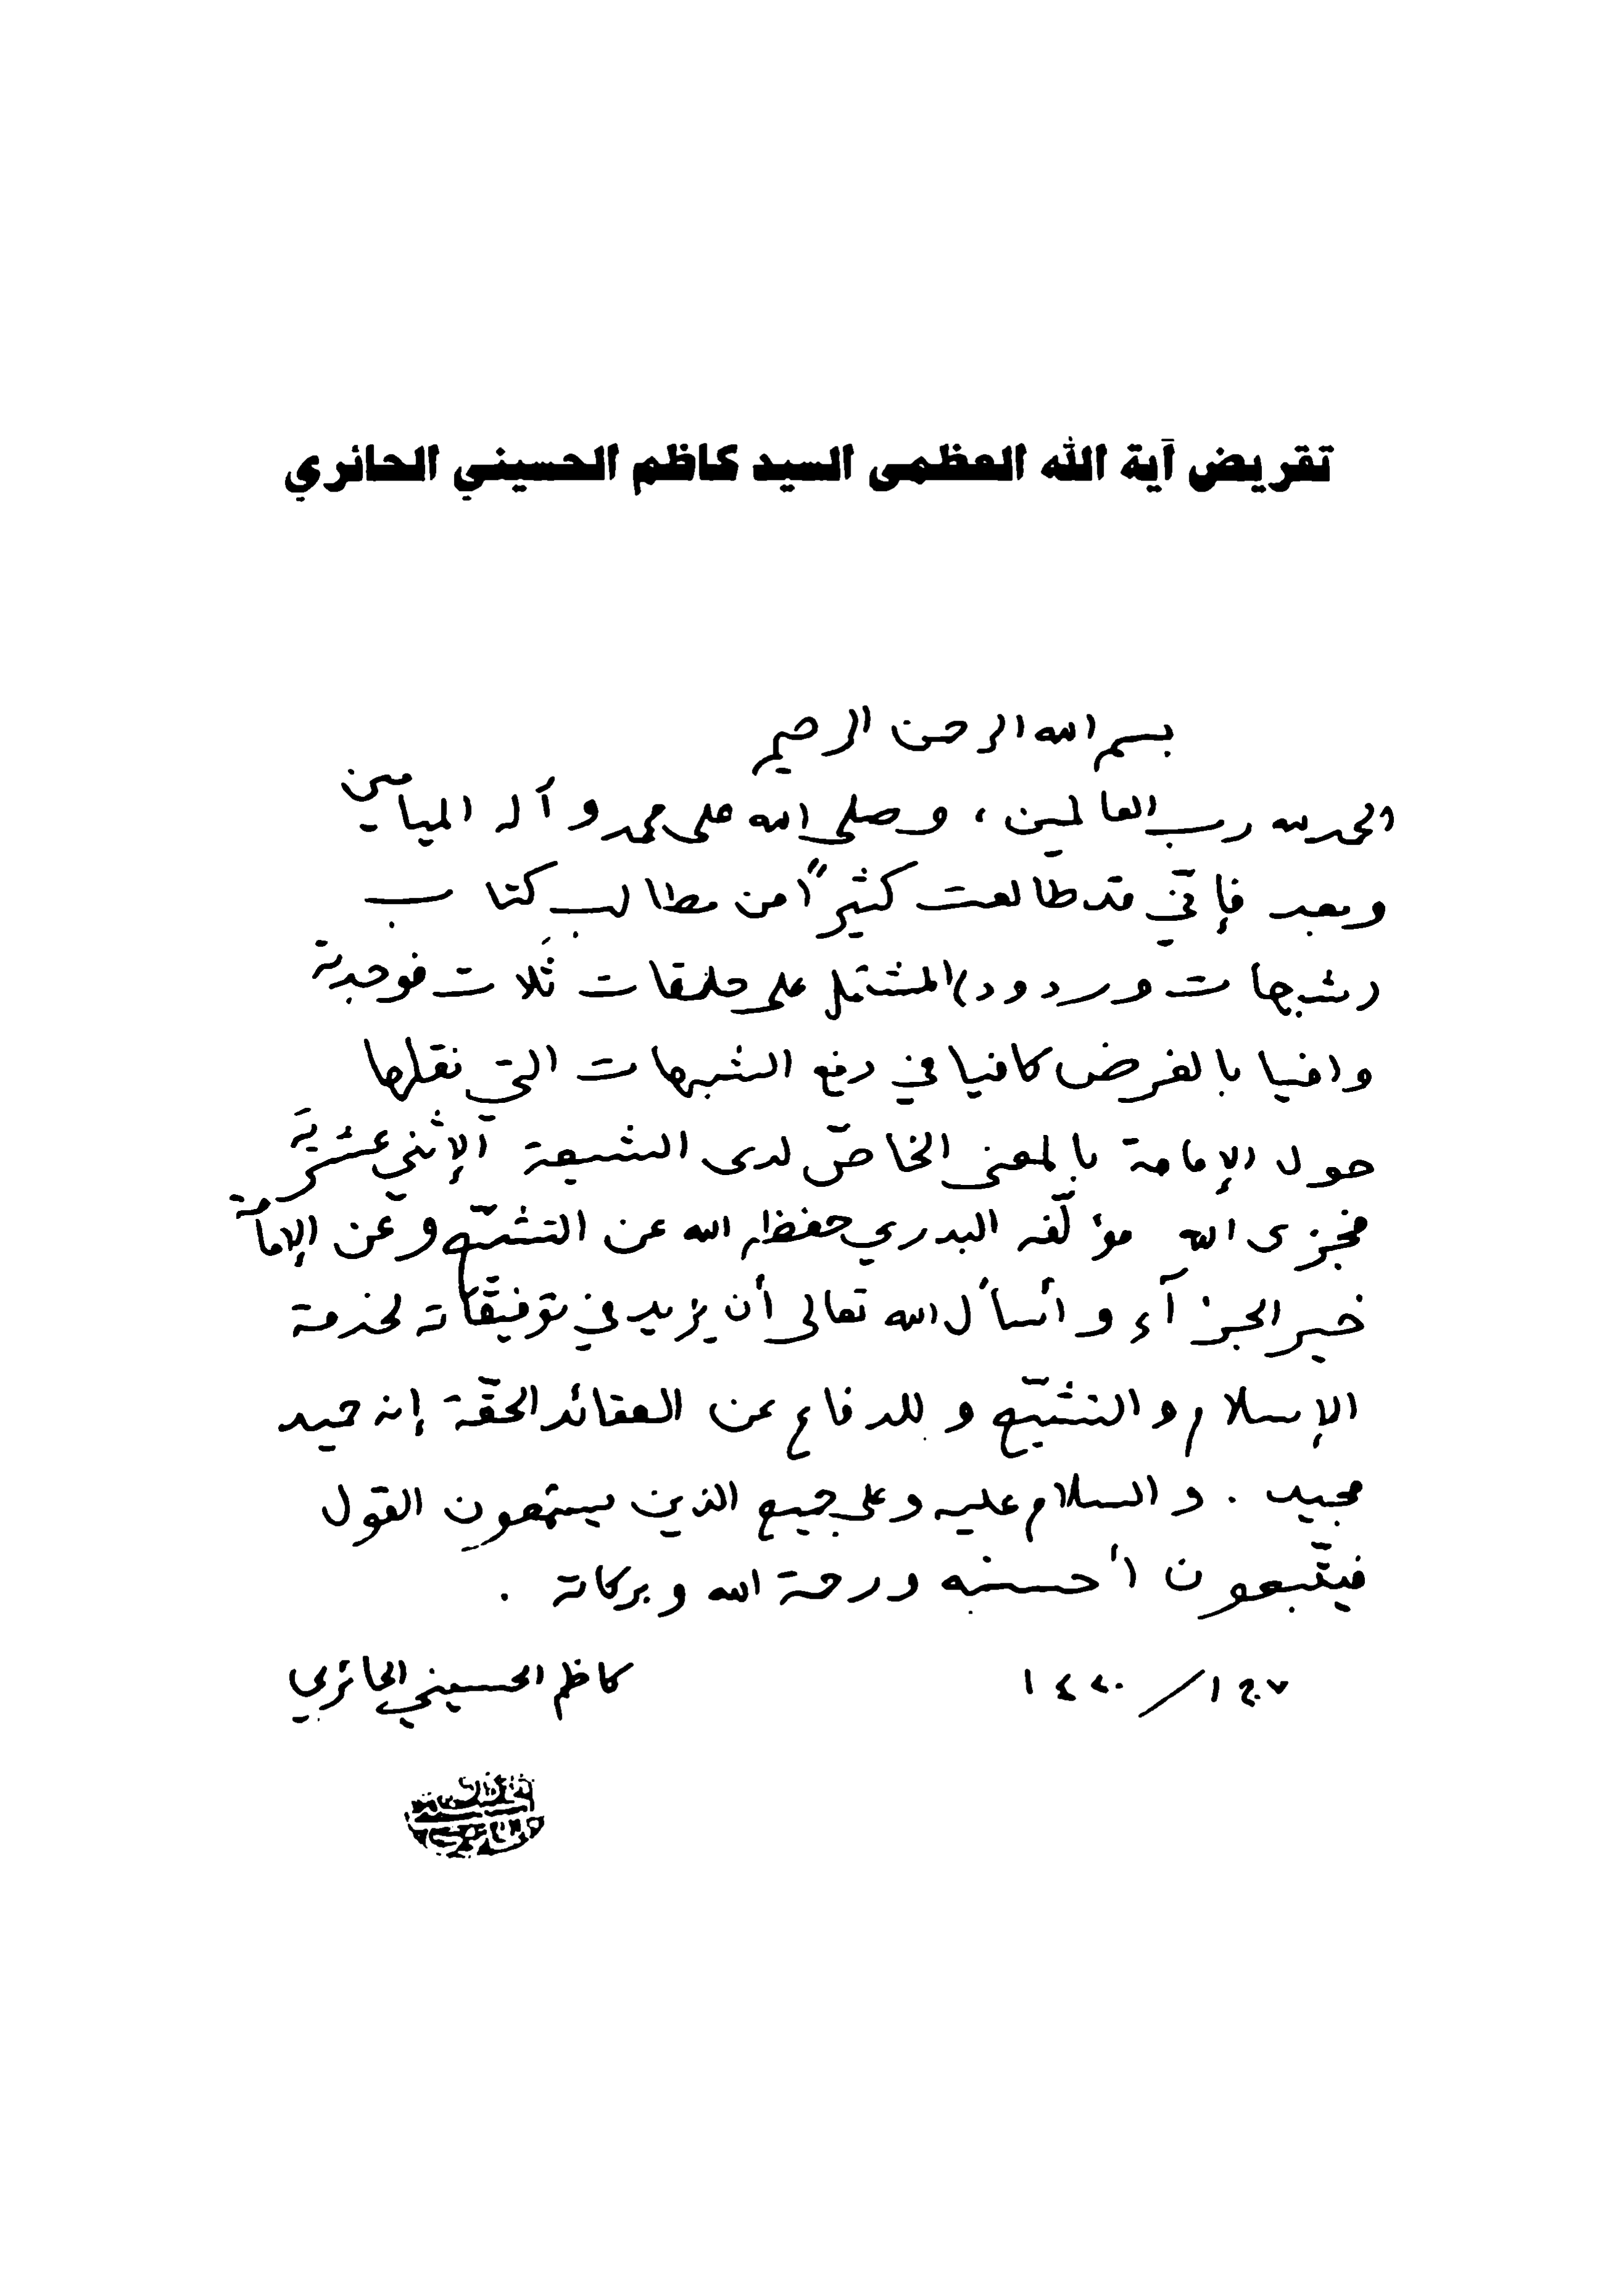 تقريض آية الله العظمى السيد كاظم الحسيني الحائري
بسم الله الرحمن الرحيم
الحمد لله رب العالمين، وصلى الله على محمد وآله الميامين
وبعد فإنّي قد طالعت كثيراً من مطالب كتاب
(شبهات وردود) المشتمل على حلقات ثلاث فوجدته
وافيا بالغرض كافيا في دفع الشبهات التي نقلها
حول الإمامة بالمعنى الخاصّ لدى الشيعة الإثني عشريّة
فجزى الله مؤلّفه البدري حفظه الله عن التشيّع وعن الإمامة
خير الجزآء وأسأل الله تعالى أن يزيد في توفيقاته لخدمة
الإسلام والتشيّع وللدفاع عن العقائد الحقّة إنه حميد
مجيد . والسلام عليه وعلى جميع الذين يستمعون القول
فيتّبعون أحسنه ورحمة الله وبركاته .
١٤٢٠ كاظم الحسيني الحائري